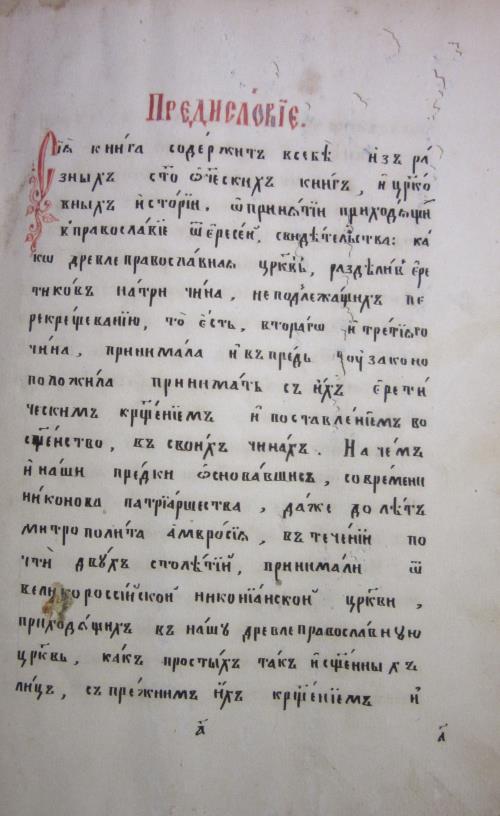 Предисло́віе.
Сїѧ̀ кни́га соде́ржитъ всебѣ̀ изъ ра́
зныхъ ст҃о ѻ҆те́ческихъ книгъ, и҆ цр҃ко́
вныхъ и҆сторїи. ѡ҆ приня́тїи приходѧ́щиⷯ
к̾правосла́вїе ѿ є҆ресе́й, свидѣ́тельства: ка́
кѡ древлеправосла́вная цр҃ковь, раздѣли́в є҆ре
тиковъ на три чи́на, не подлежа́щихъ пе
рекрещеванїю, то є҆сть, втораго и҆ тре́тїяго
чи́на, принима́ла и҆ впредь оу҆законо
положи́ла принима́ть съ и҆́хъ є҆рети́
ческимъ крⷭ҇ще́нїемъ и҆ поставле́нїемъ во
сщ҃е́нство, въ свои́хъ чина́хъ. На че́мъ
и҆ на́ши пре́дки ѡ҆снова́вшись, со време́ни
никонова патрїа́ршества, да́же до лѣ́тъ
митрополи́та а҆мвро́сїя, въ тече́нїи по
чтѝ дву́хъ столѣ́тїй, принима́ли ѿ
великоросси́йской никонїа́нской це́ркви,
приходѧ́щихъ въ на́шу древлеправосла́вную
це́рковь, ка́къ просты́хъ та́къ и҆ сщ҃е́нныхъ
ли́цъ, съ пре́жнимъ и҆́хъ крⷭ҇ще́нїемъ и҆
а҃
а҃